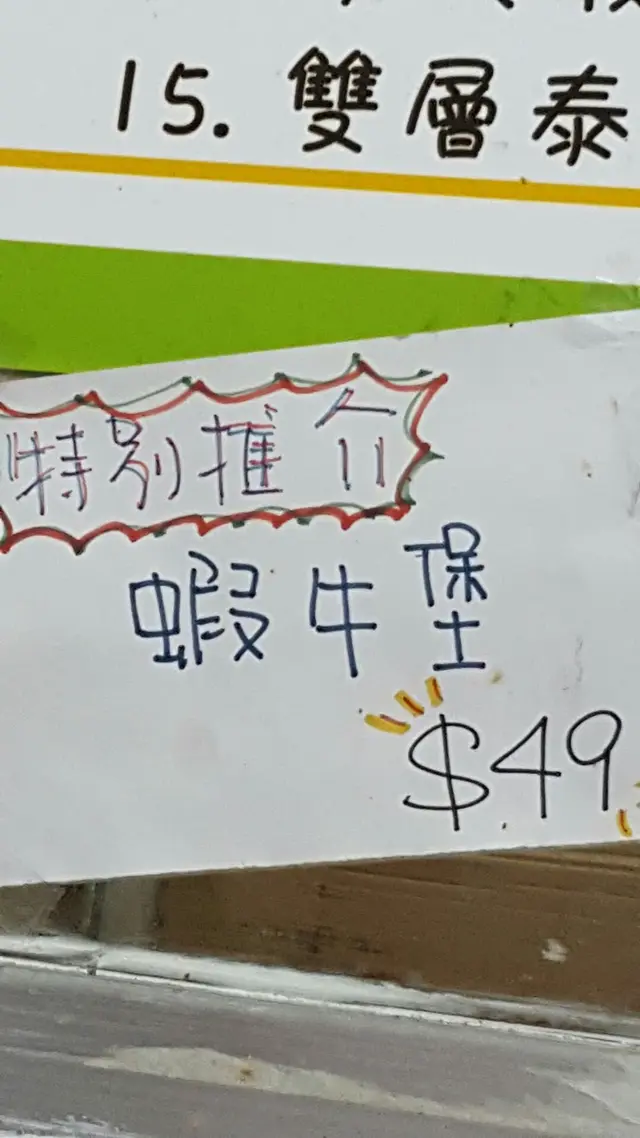 15. 雙層泰
特別推介
蝦牛堡
$49